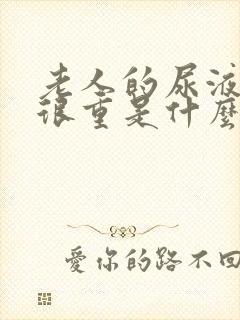 老人的尿液
很重是什麼
愛你的路不回